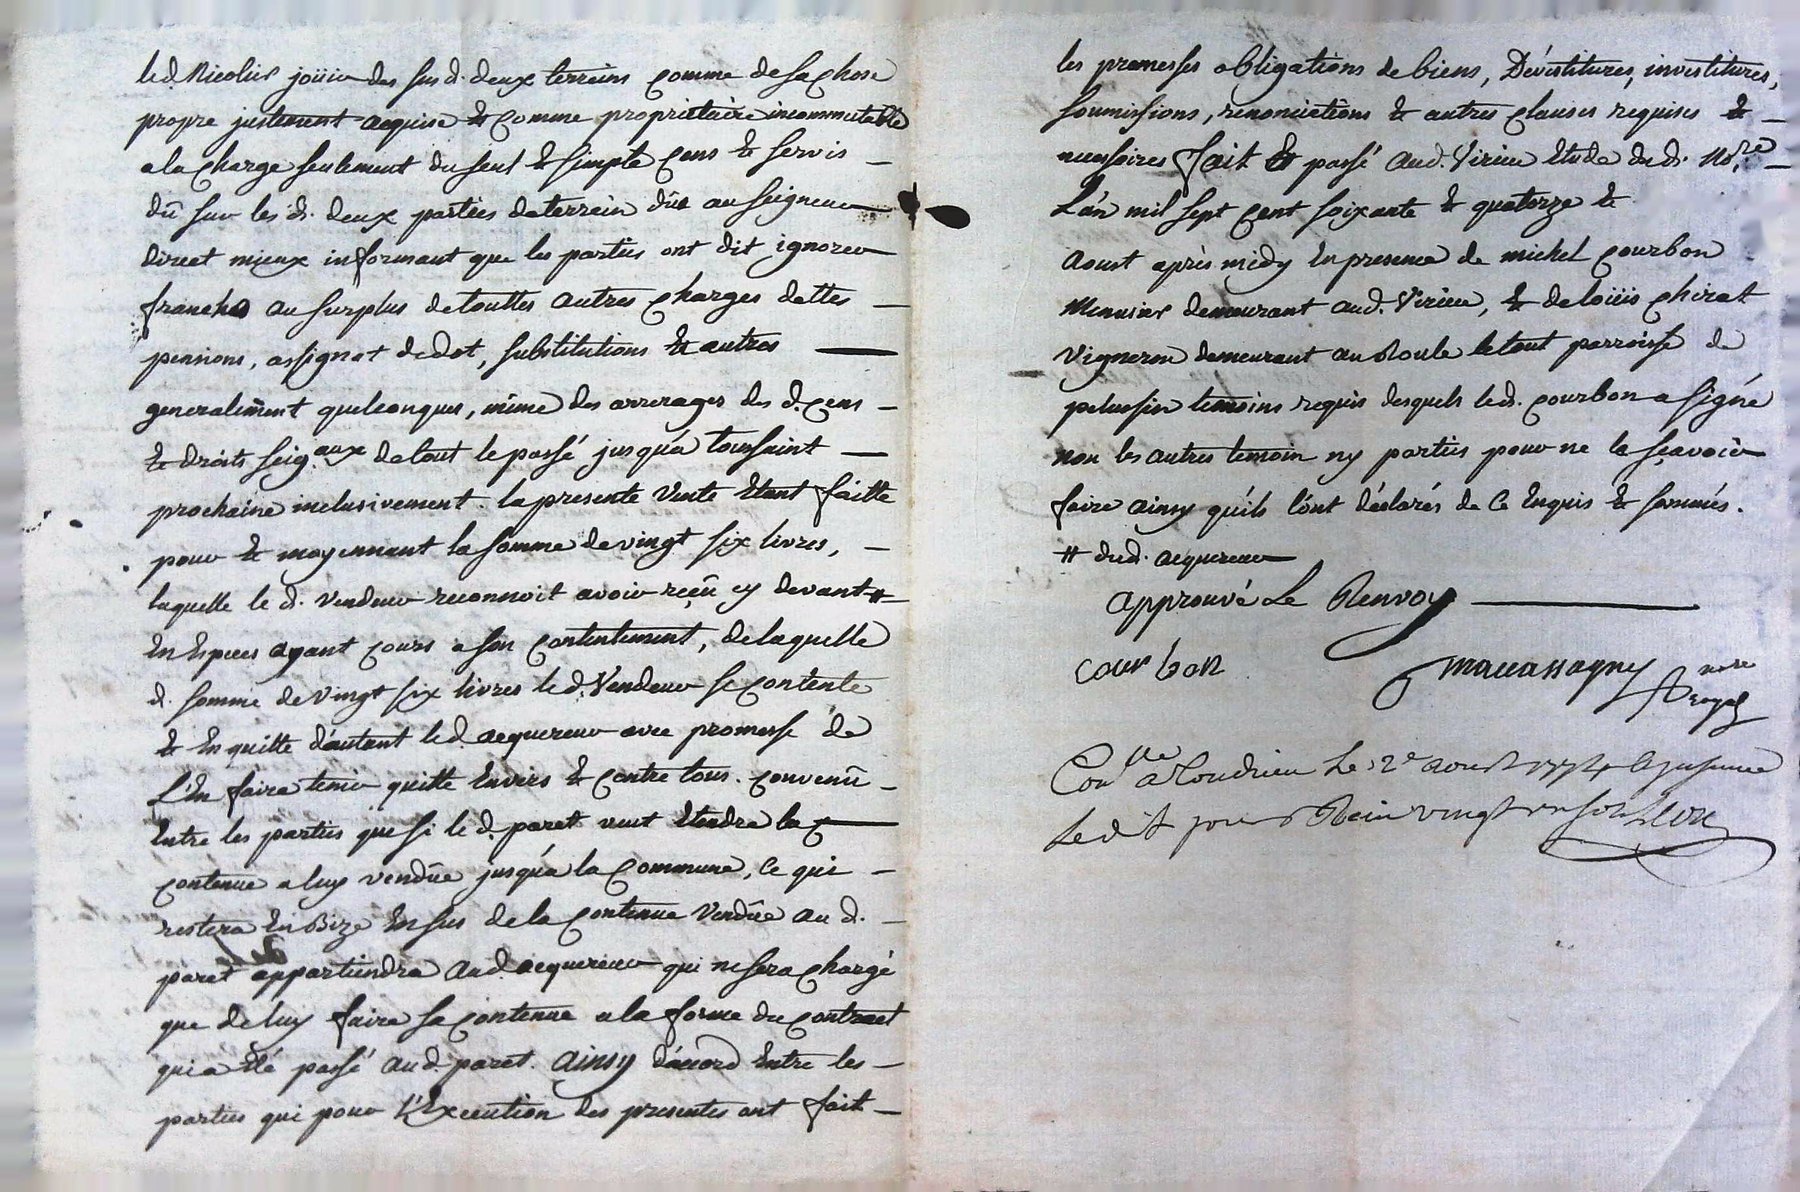 led. Nicolier joüir des susd. deux terreins comme de sa chose
propre justement acquise & comme proprietaire incommutable
a la charge seulement du seul & simple cens & servis
dû sur les d. deux parties de terrein dûe au seigneur
direct mieux informant que les parties ont dit ignorer
franches au surplus de touttes autres charges dettes
pensions, assignat de dot, substitutions & autres
generalement quelconques, même des arrerages des d. cens
& droits seig.aux de tout le passé jusqu'a toussaint
prochaine inclusivement. la presente vente etant faitte
pour & moyennant la somme de vingt six livres,
laquelle le d. vendeur reconnoit avoir reçû cy devant #
en especes ayant cours a son contentement, de laquelle
d. somme de vingt six livres le d. vendeur se contente
& en quitte d'autant led. acquereur avec promesse de
l'en faire tenir quitte envers & contre tous. convenû
entre les parties que si le d. paret veut etendre la
contenue a luy vendüe jusqu'a la commune, ce qui
restera en Bize en sus de la contenue vendüe au d.
paret appartiendra aud. acquereur qui ne sera chargé
que de luy faire sa contenue a la forme du contract
qui a été passé aud. paret. ainsy d'accord entre les
parties qui pour l'execution des presentes ont fait
les promesses obligations de biens, Dévestitures, investitures,
soumissions, renonciations & autres clauses requises &
necessaires fait & passé aud. Virieu Etude du d. No.re
L'an mil sept cent soixante & quatorze le
aoust après midy en presence de michel courbon
Menusier demeurant aud. Virieu, & de loüis chirat
vigneron demeurant au Roule le tout parroisse de
pelussin temoins requis desquels le d. courbon a signé
non les autres temoin ny parties pour ne le sçavoir
faire ainsy qu'ils l'ont déclarés de ce enquis & sommés.
# dud. acquereur
approuvé Le Renvoy
courbon mauassagny nore royal
Con.lle a Condrieu Le 2e aoust 1774
Le dit jour Recu vingt un sols